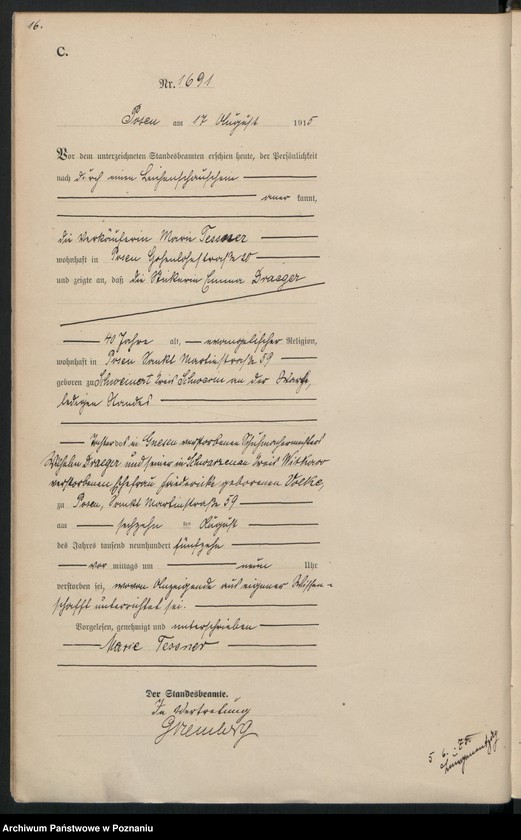 16.
C.
Nr. 1691
Posen am 17 August 1915
Vor dem unterzeichneten Standesbeamten erschien heute, der Persönlichkeit
nach durch einen Leichenschauschein
aner kannt,
die Verkäuferin Marie Tessner
wohnhaft in Posen Hohenlohestraße 10
und zeigte an, daß die Emma Draeger
40 Jahre alt, evangelischer Religion,
wohnhaft in Posen Sankt Martinstraße 59
geboren zu Kreis Schwerin an der Warthe,
ledigen Standes
Tochter des in Gnesen verstorbenen Schuhmachermeisters
Wilhelm Draeger und seiner in Schwarzenau Kreis Witkowo
verstorbenen Ehefrau Friederike geborenen Völke,
zu Posen, Sankt Martinstraße 59
am sechzehn ten August
des Jahres tausend neunhundert fünfzehn
vor mittags um neun Uhr
verstorben sei, wovon Anzeigende aus eigener Wissen-
schafft unterrichtet sei.
Vorgelesen, genehmigt und unterschrieben
Marie Tessner
Der Standesbeamte.
In Vertretung
5 6. 75.
Archiwum Państwowe w Poznaniu